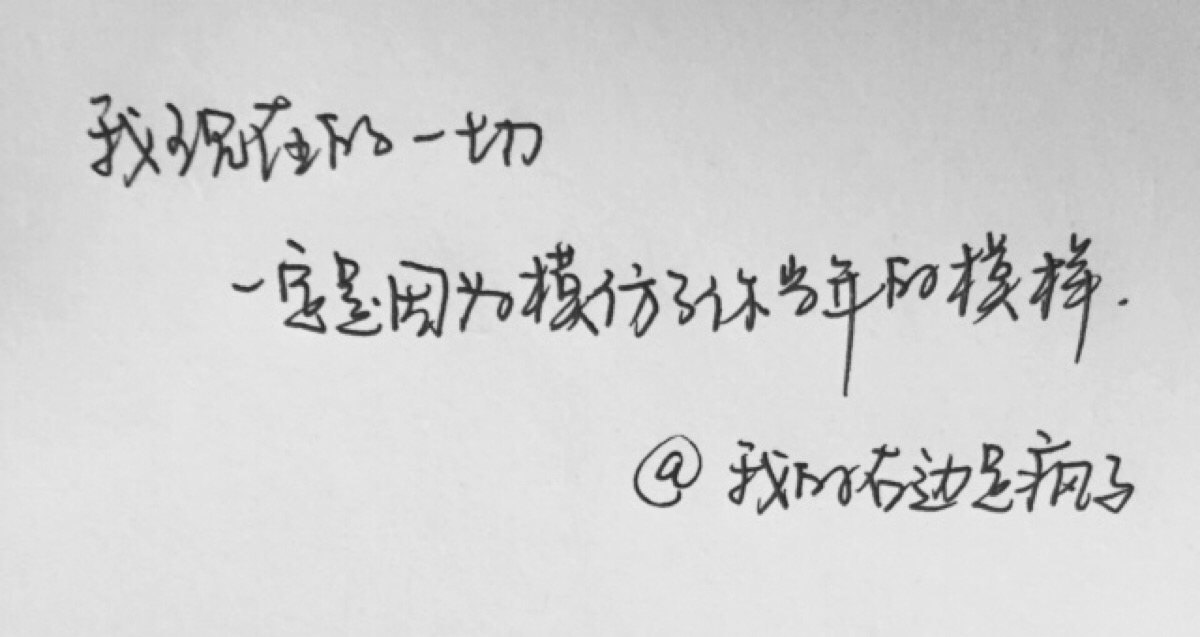 我现在的一切
一定是因为模仿了你当年的模样.
@我的右边是疯子